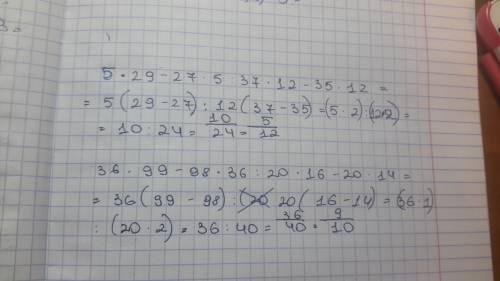 5 · 29 - 27 · 5 : 37 · 12 - 35 · 12 =
= 5 ( 29 - 27 ) : 12 ( 37 - 35 ) = (5 · 2) : (12·2) =
= 10 : 24 = 10/24 = 5/12
36 · 99 - 98 · 36 : 20 · 16 - 20 · 14 =
= 36 ( 99 - 98 ) : 20 ( 16 - 14 ) = (36 · 1)
: (20 · 2) = 36 : 40 = 36/40 = 9/10